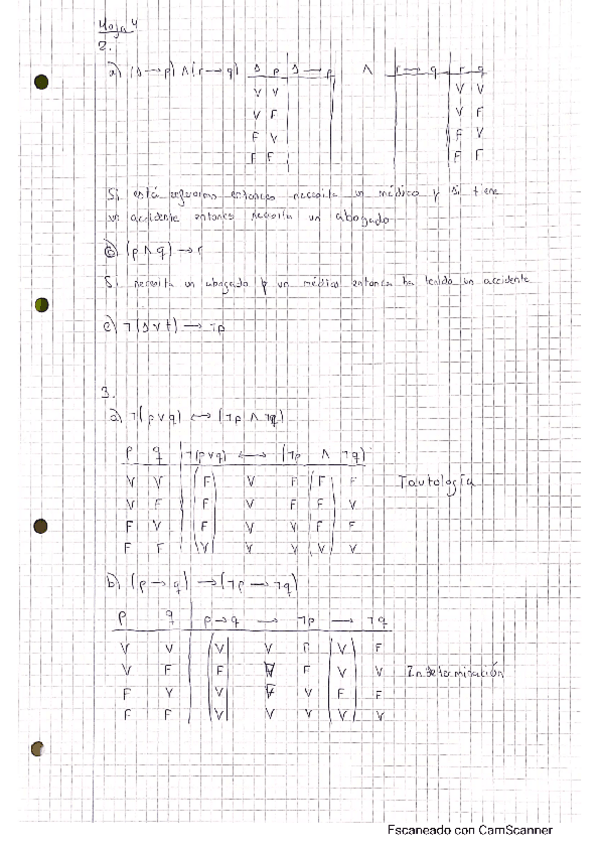 Hoja 4
2.
a) (s → p) ∧ (r → q) s p s → p ∧ r → q r q
V V V V
V F V F
F V F V
F F F F
Si está enfermo entonces necesita un médico y si tiene
un accidente entonces necesita un abogado
(p ∧ q) → r
Si necesita un abogado y un médico entonces ha tenido un accidente
c) ¬(s ∨ t) → ¬p
3.
a) ¬(p ∨ q) ↔ (¬p ∧ ¬q)
p q ¬(p ∨ q) ↔ (¬p ∧ ¬q)
V V F V F F F Tautología
V F F V F F V
F V F V V F F
F F V V V V V
b) (p → q) → (¬p → ¬q)
p q p → q → ¬p → ¬q
V V V V F V F
V F F V F V V Indeterminación
F V V F V F F
F F V V V V V
Escaneado con CamScanner